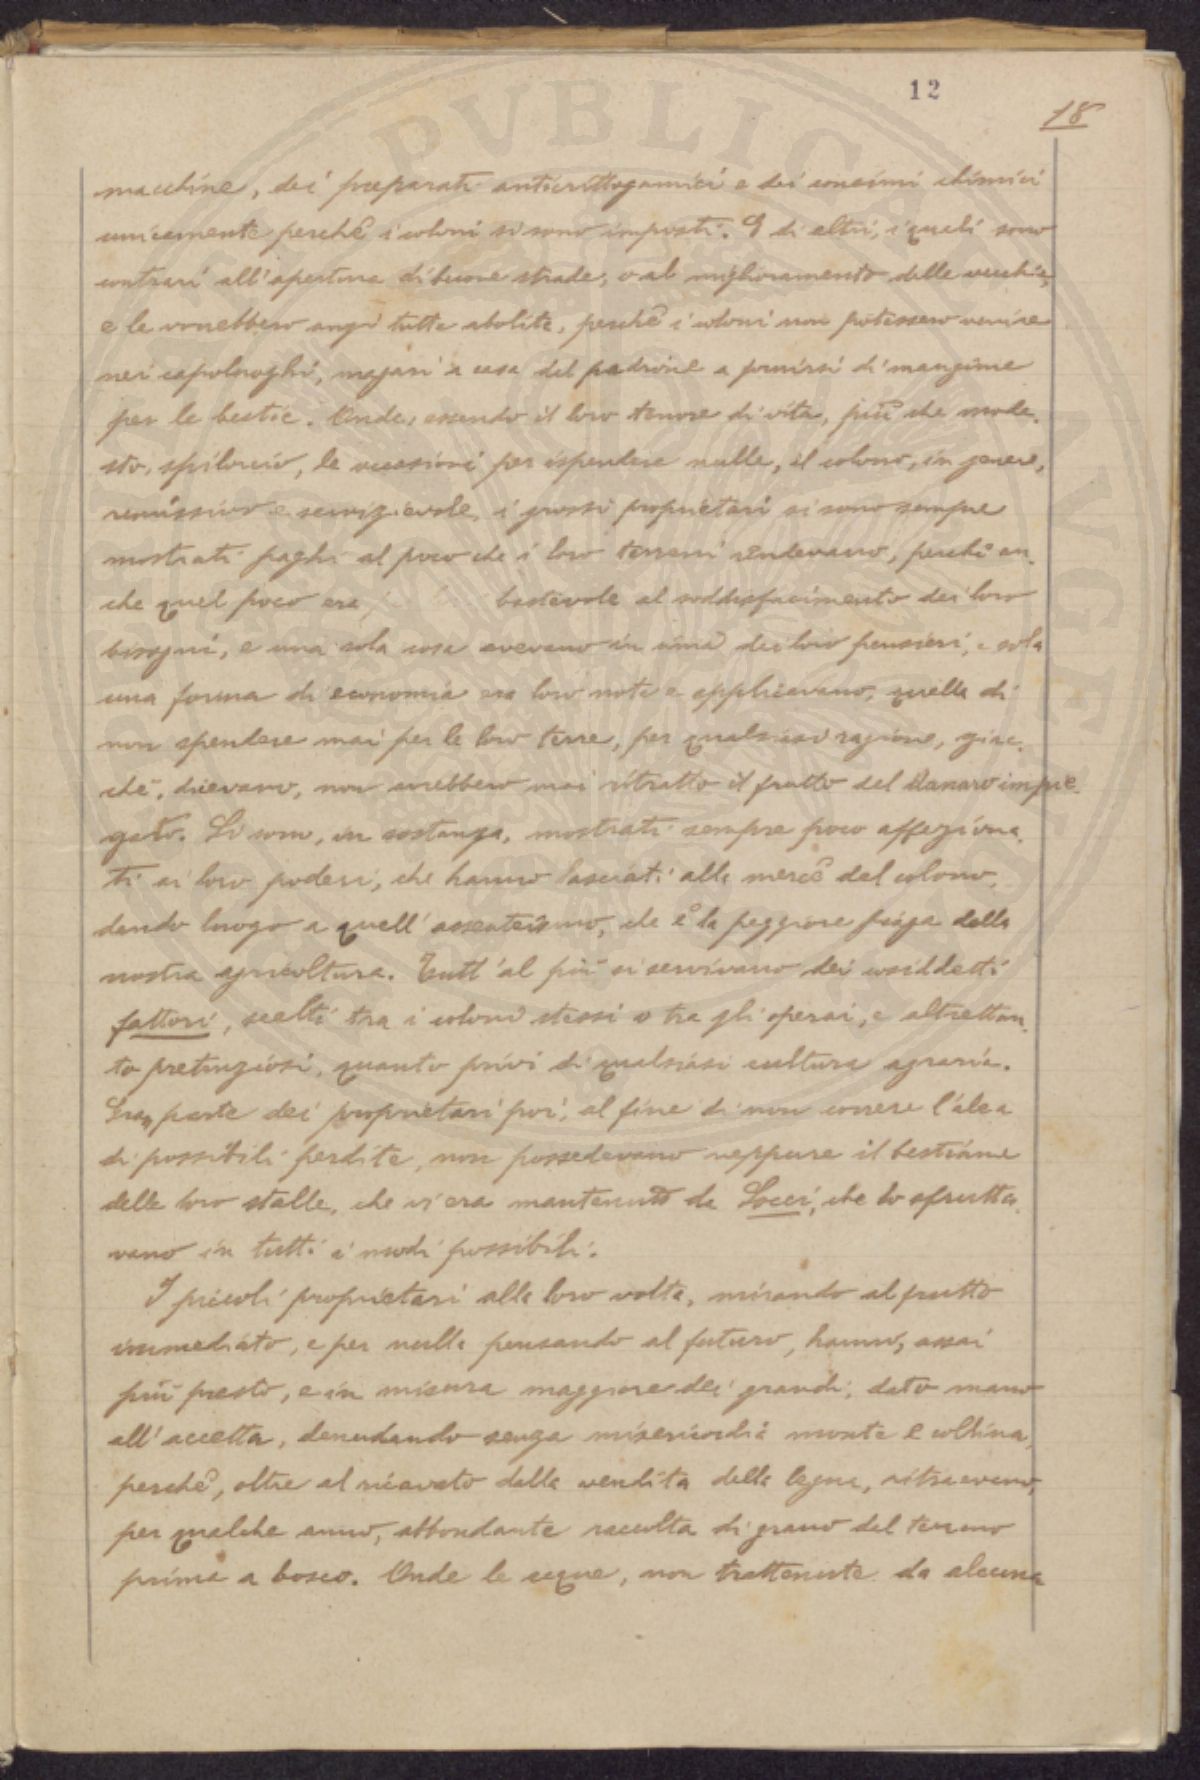 12
18
macchine, dei preparati anticrittogamici e dei concimi chimici
unicamente perchè i coloni si sono imposti. E di altri, i quali sono
contrari all'apertura di buone strade, o al miglioramento delle vecchie,
e le vorrebbero anzi tutte abolite, perchè i coloni non potessero venire
nei capoluoghi, magari a casa del padrone a fornirsi di mangime
per le bestie. Onde, essendo il loro tenore di vita, più che mode-
sto, spilorcio, le occasioni per ispendere nulle, il colono, in genere,
remissivo e servizievole, i grossi proprietari si sono sempre
mostrati paghi al poco che i loro terreni rendevano, perchè an-
che quel poco era bastevole al soddisfacimento dei loro
bisogni, e una sola cosa avevano in cima dei loro pensieri, e sola
una forma di economia era loro nota e applicavano, quella di
non spendere mai per le loro terre, per qualsiasi ragione, giac-
chè, dicevano, non avrebbero mai ritratto il frutto del danaro impie-
gato. Si sono, in sostanza, mostrati sempre poco affeziona-
ti ai loro poderi, che hanno lasciati alla mercè del colono,
dando luogo a quell'assenteismo, che è la peggiore piaga della
nostra agricoltura. Tutt'al più si servivano dei cosiddetti
fattori, scelti tra i coloni stessi o tra gli operai, e altrettan-
to pretenziosi, quanto privi di qualsiasi cultura agraria.
Gran parte dei proprietari poi, al fine di non correre l'alea
di possibili perdite, non possedevano neppure il bestiame
delle loro stalle, che vi era mantenuto da Socci, che lo sfrutta-
vano in tutti i modi possibili.
I piccoli proprietari alla loro volta, mirando al frutto
immediato, e per nulla pensando al futuro, hanno, assai
più presto, e in misura maggiore dei grandi, dato mano
all'accetta, denudando senza misericordia monte e collina,
perchè, oltre al ricavato dalla vendita della legna, ritraevano,
per qualche anno, abbondante raccolta di grano del terreno
prima a bosco. Onde le acque, non trattenute da alcuna
PVBLICA